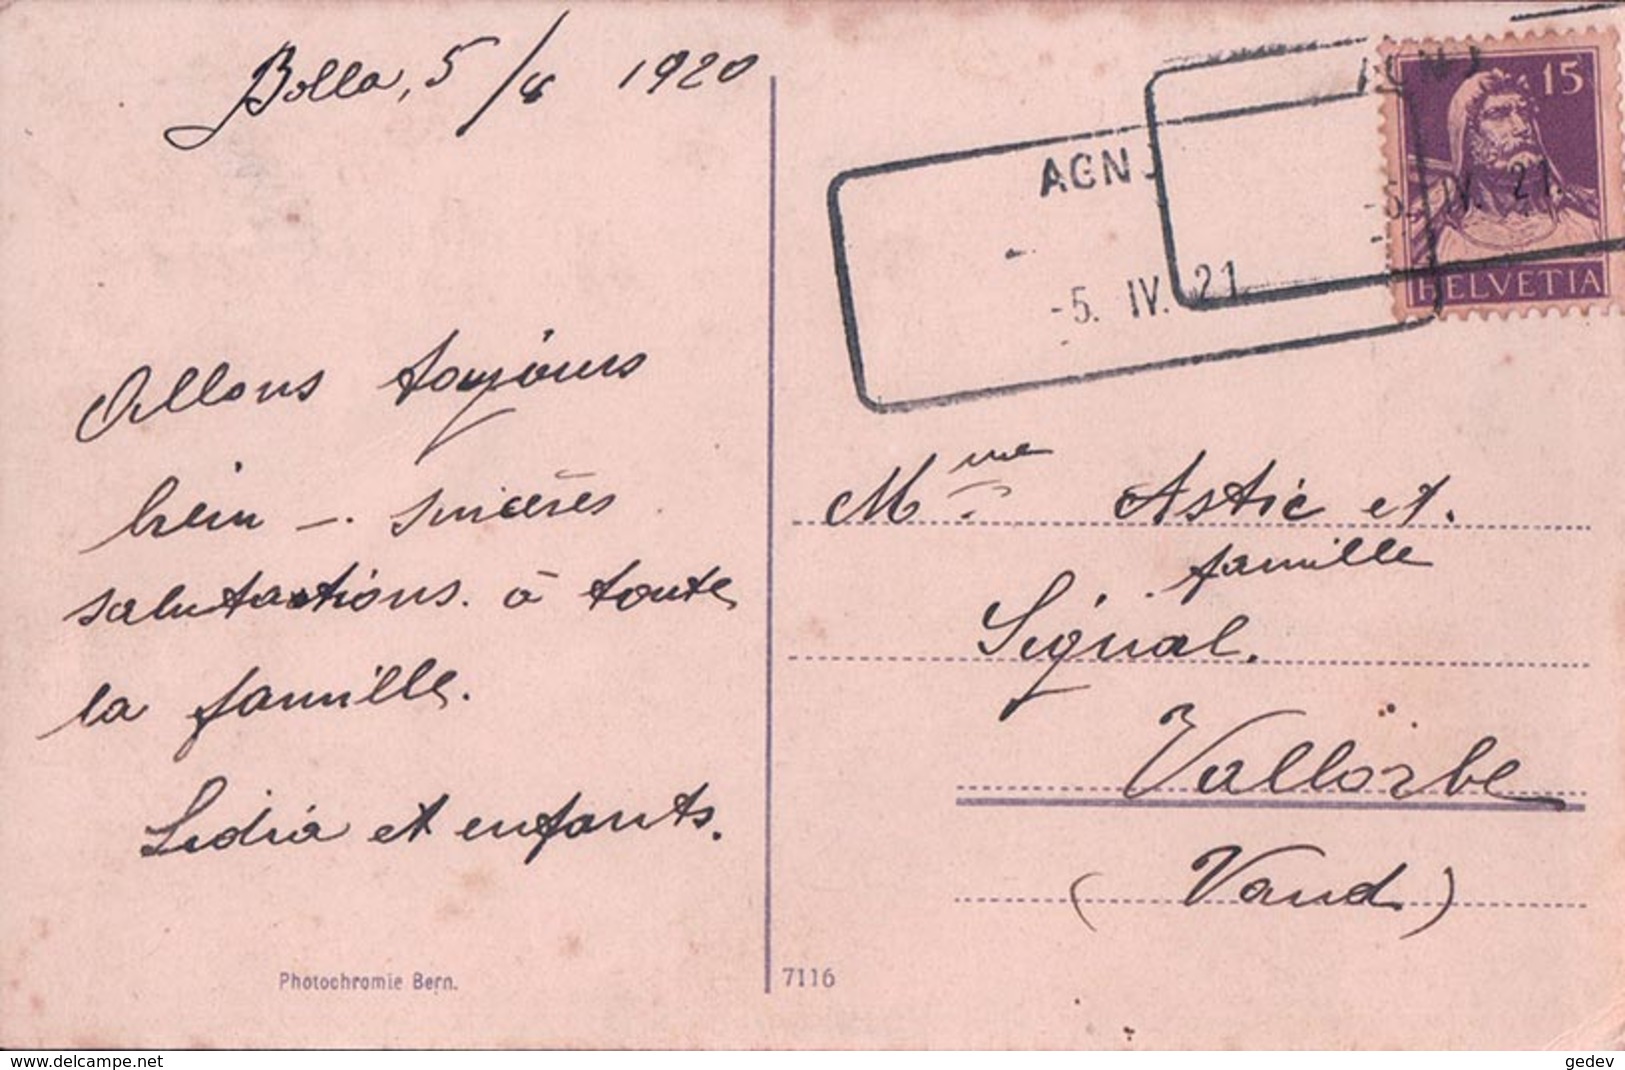 Bolla, 5/4 1920
Allons toujours
bein -. sincères
salutations. à toute
la famille.
Lidia et enfants.
Photochromie Bern.
7116
AGNO
-5. IV. 21.
-5. IV. 21.
15
HELVETIA
Mme Astic et.
famille
Signal.
Vallorbe
(Vaud)
www.delcampe.net
gedev